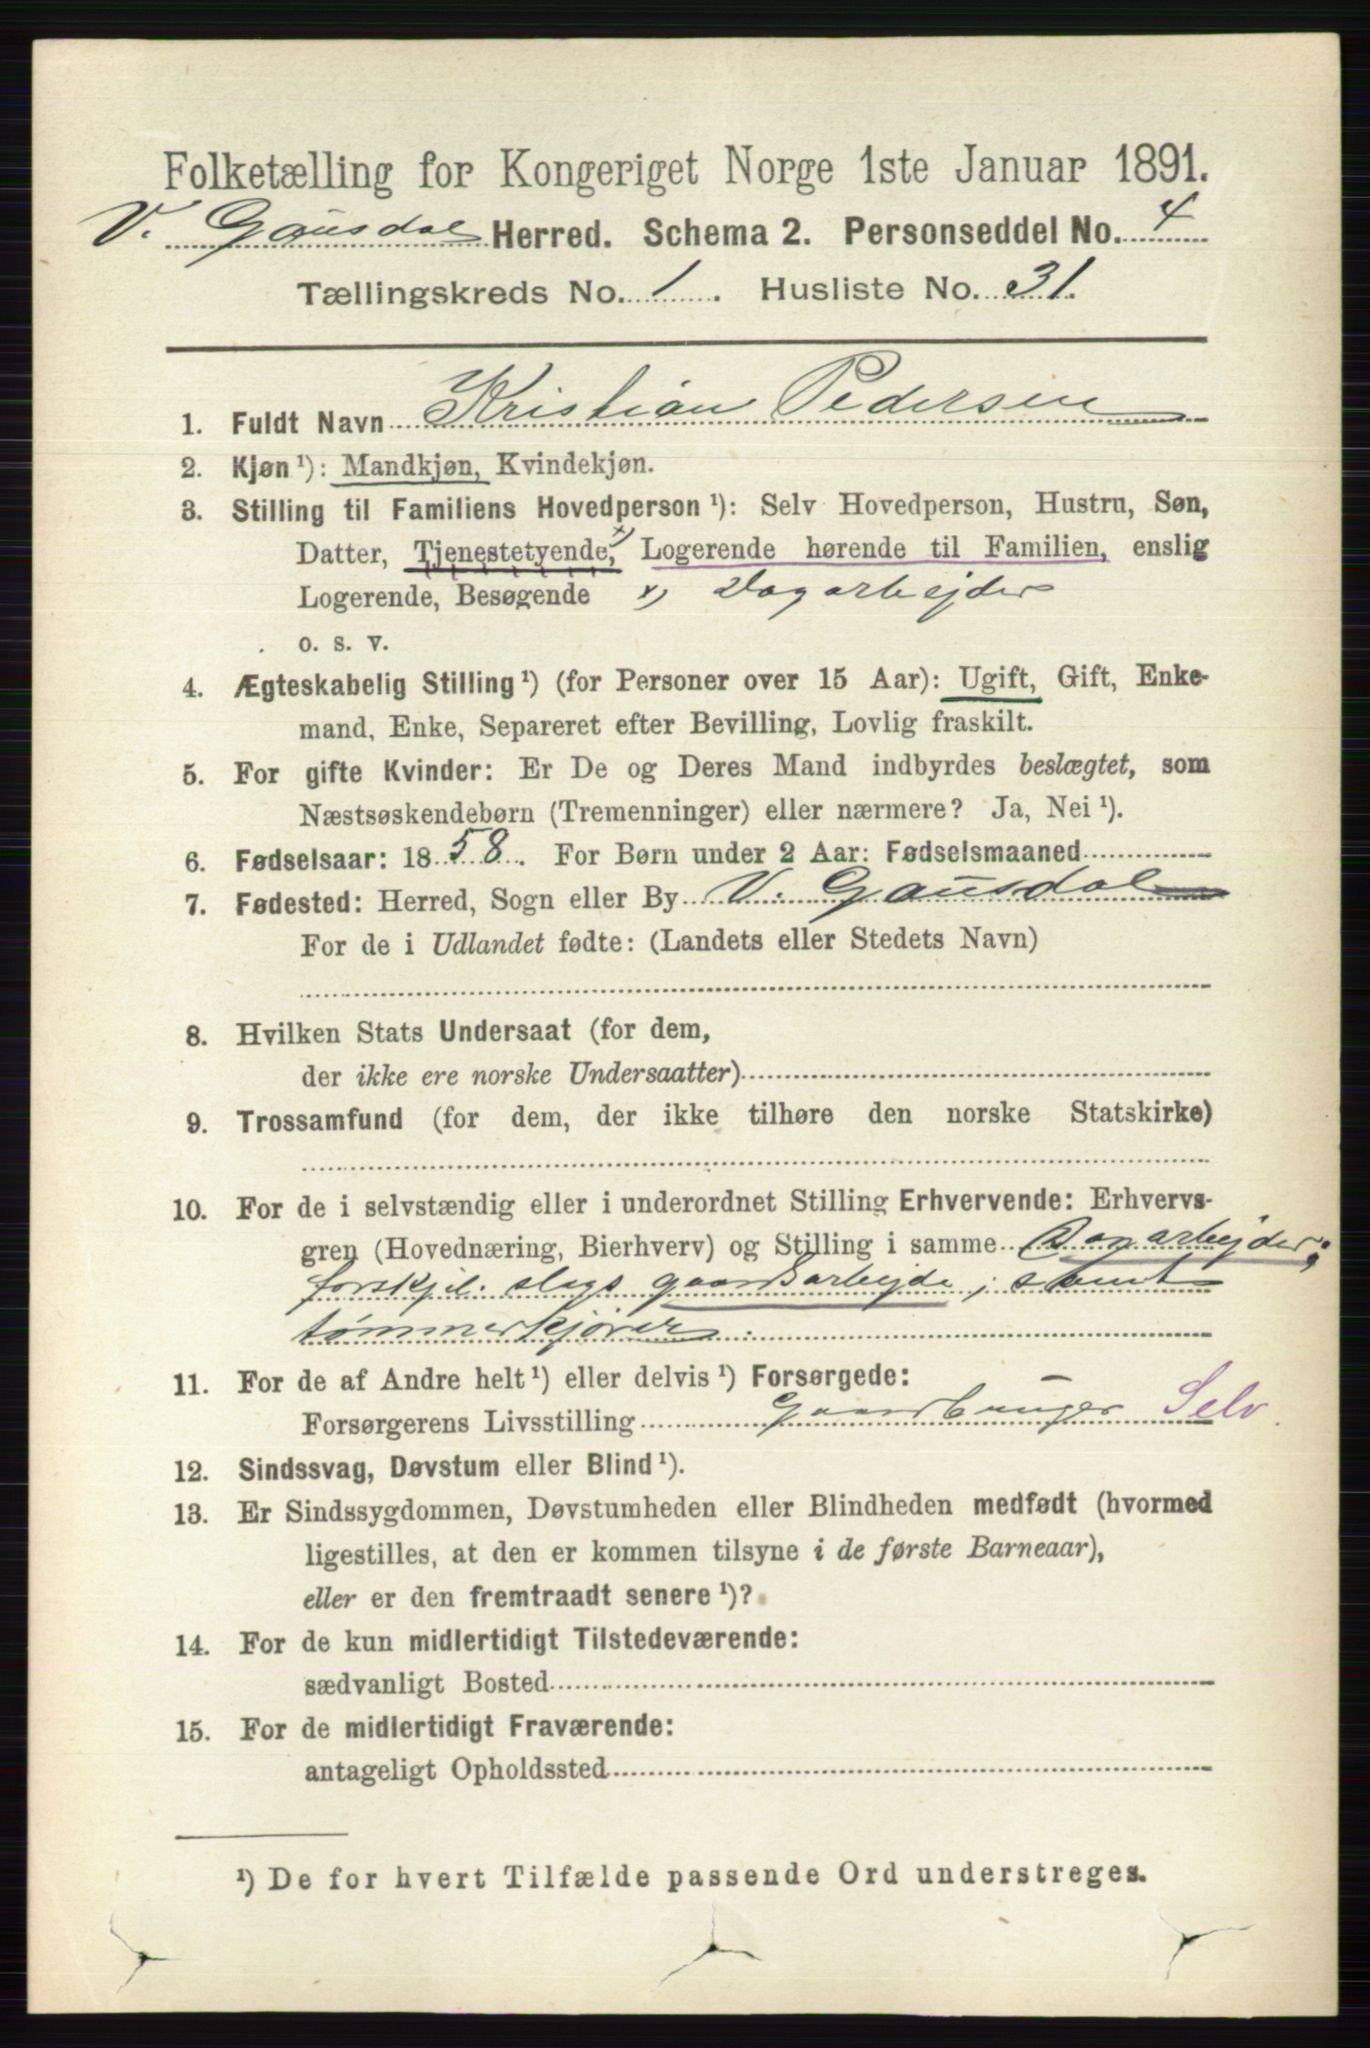 Folketælling for Kongeriget Norge 1ste Januar 1891.
V. Gausdal Herred. Schema 2. Personseddel No. 4
Tællingskreds No. 1. Husliste No. 31.
1. Fuldt Navn Kristian Pedersen
2. Kjøn ¹): Mandkjøn, Kvindekjøn.
3. Stilling til Familiens Hovedperson ¹): Selv Hovedperson, Hustru, Søn,
Datter, Tjenestetyende, x) Logerende hørende til Familien, enslig
Logerende, Besøgende x) Dagarbejder
o. s. v.
4. Ægteskabelig Stilling ¹) (for Personer over 15 Aar): Ugift, Gift, Enke-
mand, Enke, Separeret efter Bevilling, Lovlig fraskilt.
5. For gifte Kvinder: Er De og Deres Mand indbyrdes beslægtet, som
Næstsøskendebørn (Tremenninger) eller nærmere? Ja, Nei ¹).
6. Fødselsaar: 1858. For Børn under 2 Aar: Fødselsmaaned
7. Fødested: Herred, Sogn eller By V. Gausdal
For de i Udlandet fødte: (Landets eller Stedets Navn)
8. Hvilken Stats Undersaat (for dem,
der ikke ere norske Undersaatter)
9. Trossamfund (for dem, der ikke tilhøre den norske Statskirke)
10. For de i selvstændig eller i underordnet Stilling Erhvervende: Erhvervs-
gren (Hovednæring, Bierhverv) og Stilling i samme Dagarbejder;
forskjel. slags gaardsarbejde; samt
tømmerkjører.
11. For de af Andre helt ¹) eller delvis ¹) Forsørgede:
Forsørgerens Livsstilling Gaardbruger Selv.
12. Sindssvag, Døvstum eller Blind ¹).
13. Er Sindssygdommen, Døvstumheden eller Blindheden medfødt (hvormed
ligestilles, at den er kommen tilsyne i de første Barneaar),
eller er den fremtraadt senere ¹)?
14. For de kun midlertidigt Tilstedeværende:
sædvanligt Bosted
15. For de midlertidigt Fraværende:
antageligt Opholdssted
¹) De for hvert Tilfælde passende Ord understreges.